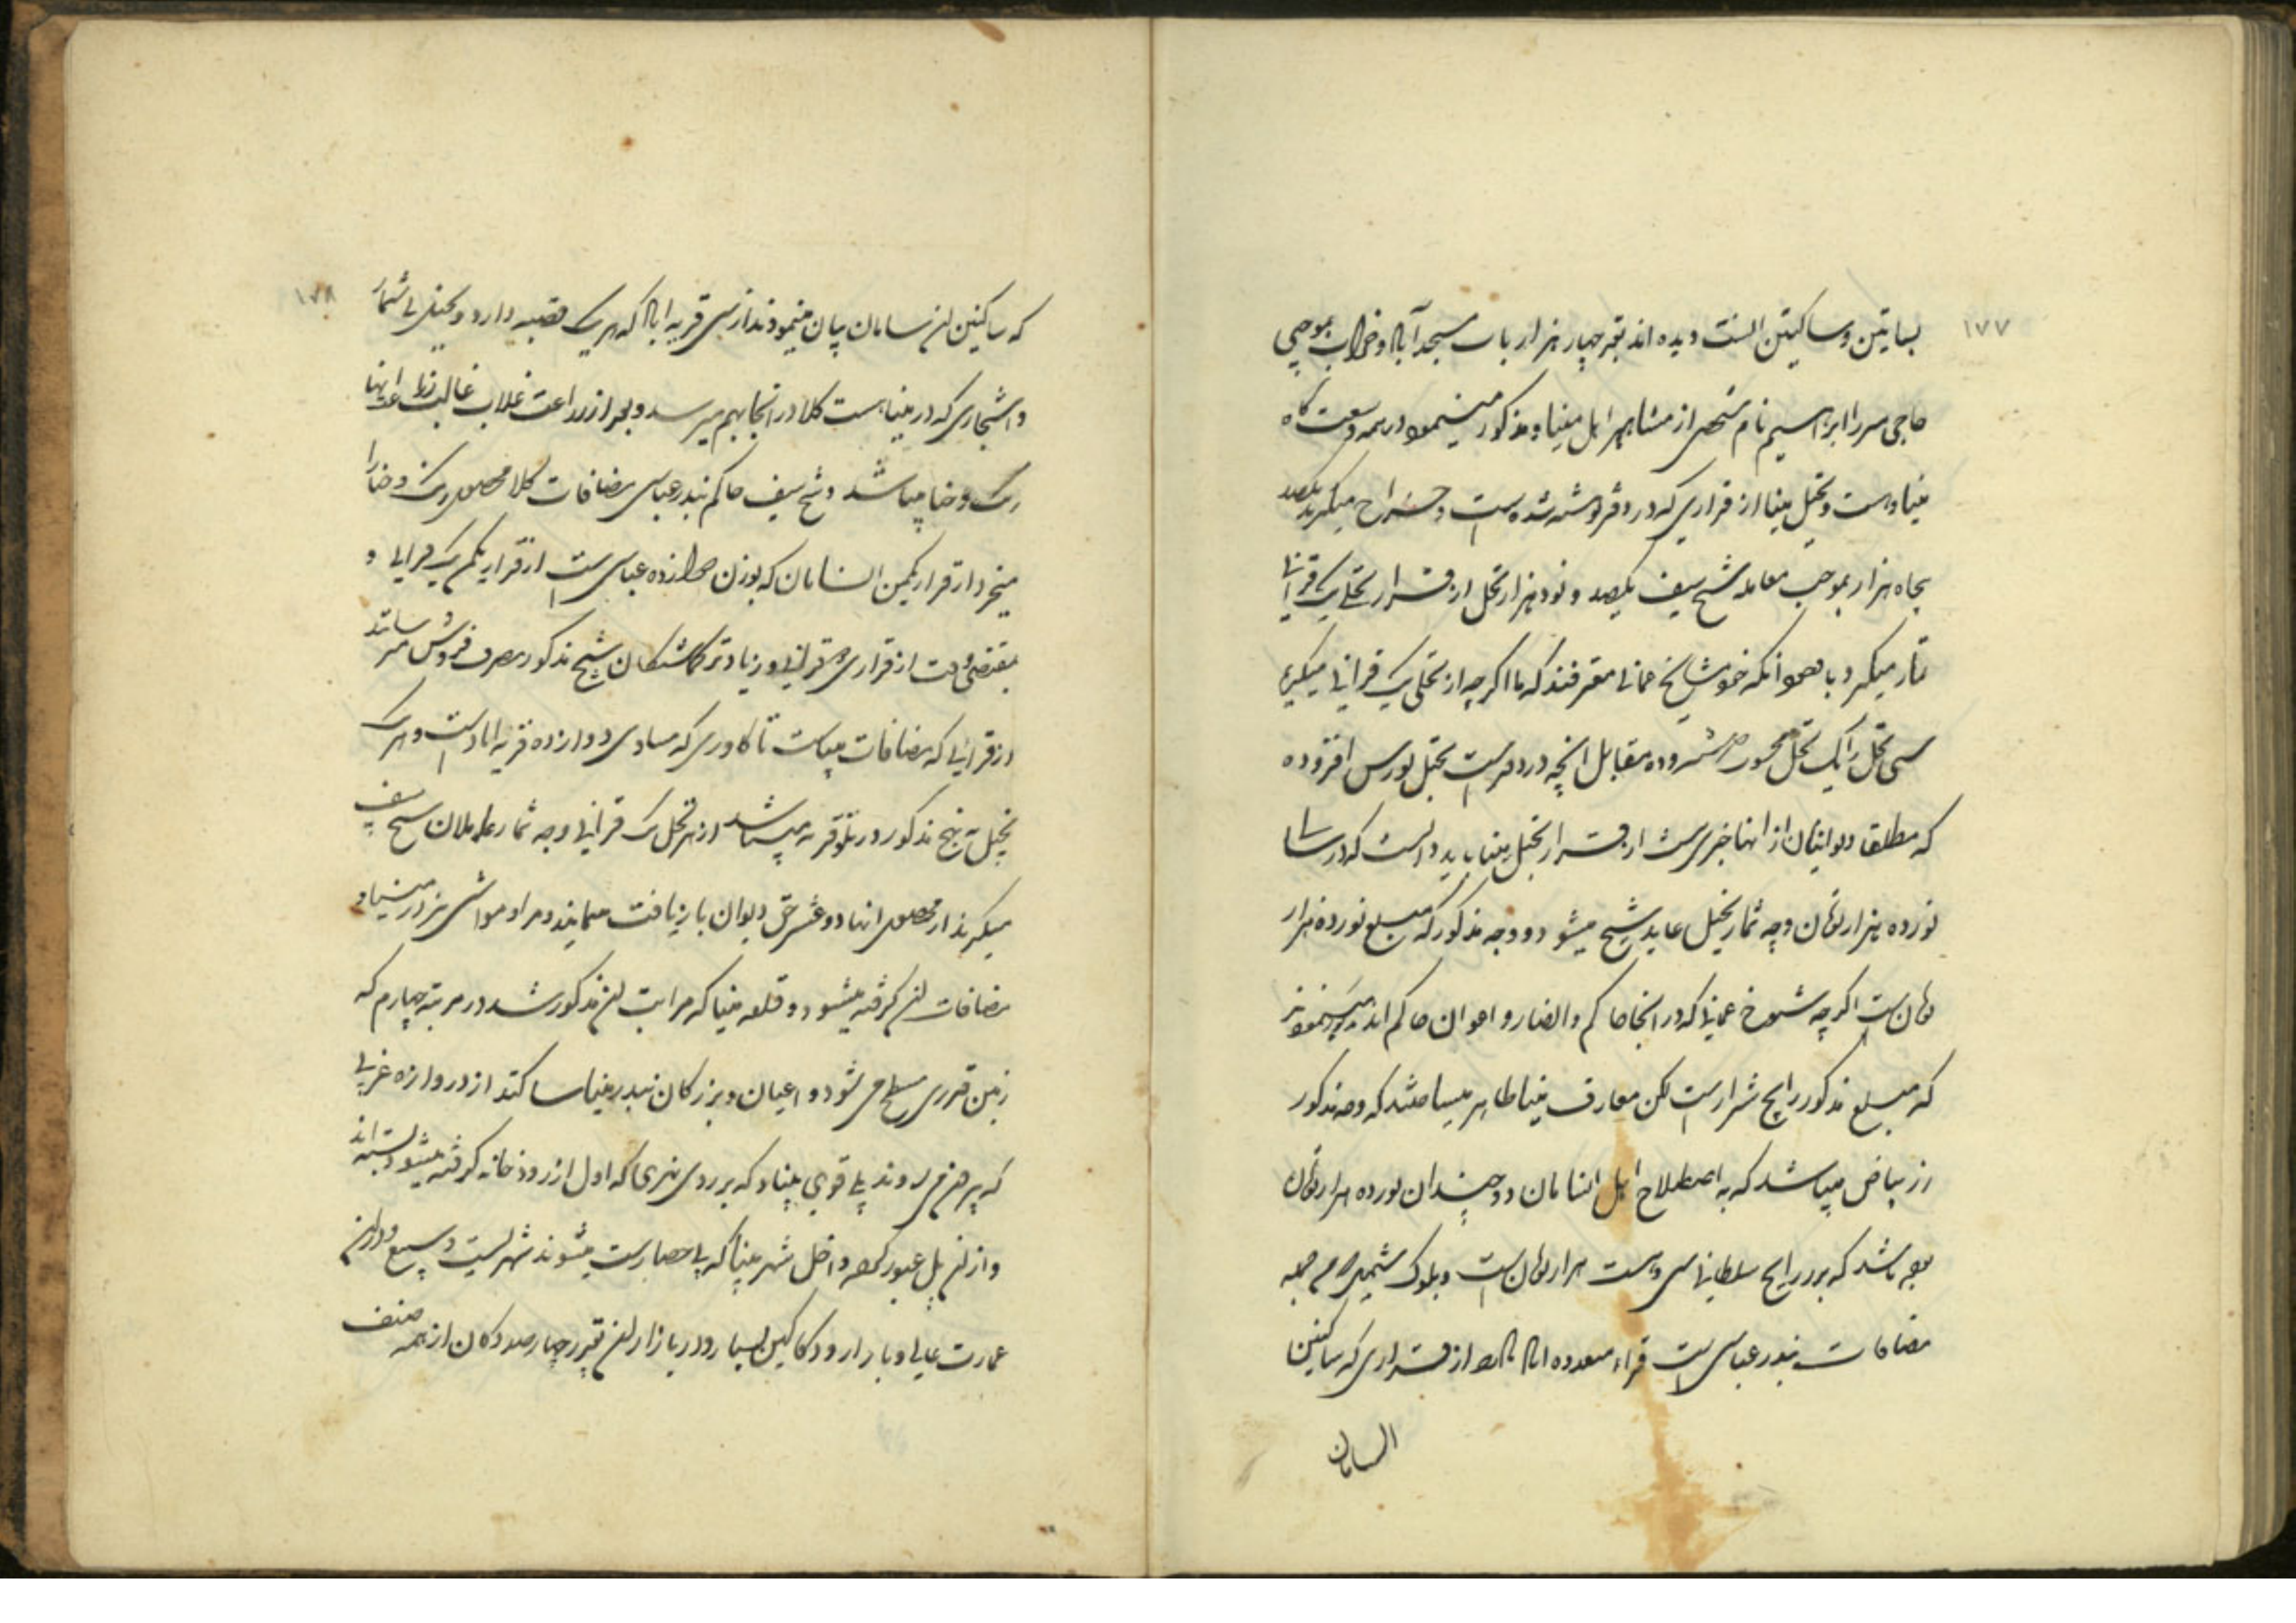 ۱۷۷
بساتین و ساکنین است دیده اند بقدر چهار هزار باب مسجد آباد و خراب بموجبی
حاجی میرزا ابراهیم نام شخص از مشاهیر اهل مینا و مذکور مینمود در همه وسعت گاه
میناوست و نخیل مینا از قراری که در دفتر نوشته شده است و خراج میگیرند یکصد
پنجاه هزار بموجب معامله شیخ سیف یکصد و نود هزار نخل از قرار نخلی یک قرانی
شمار میگیرد با وجود آنکه خود مشایخ عمانی معترفند که ما اگرچه از نخلی یک قرانی میگیریم
سی نخل را یک نخل محسوب شمرده مقابل آنچه در دفترست نخیل نورس افزوده
که مطلقا دیوانیان از آنها خبری نیست از قرار نخیل مینا باید دانست که در
نوزده هزار تومان وجه شمار نخیل عاید شیخ میشود و وجه مذکور که مبلغ نوزده هزار
تومان است اگرچه شیوخ عمانی که در آنجا حاکم و انصار و اعوان حاکم اند
که مبلغ مذکور رایج شرار است لکن معارف مینا ظاهر میساختند که وجه مذکور
زر بیاض میباشد که به اصطلاح اهل السامان دو چندان نوزده هزار تومان
بوده باشد که بزر رایج سلطانی سی و هشت هزار تومان است و بلوک شمیل هم جمله
مضافات بندر عباسی است قراء متعدده آباد دارد از قراری که ساکنین
السامان
۱۷۸
که ساکنین آن سامان بیان مینمودند از سی قریه آباد که هر یک قصبه دارد و نخیل بی شمار
و اشجاری که در میناست کلا در آنجا بهم میرسد و بجز از زراعت غلات غالب زراعت آنها
رنگ و حنا میباشد و شیخ سیف حاکم بندر عباسی مضافات کلا محصول رنگ و حنا را
میخرد از قرار یکمن السامان که بوزن دوازده عباسی است از قرار یکمن یک قرانی و
بمقتضی وقت از قراری دو قرانی و زیادتر گماشتگان شیخ مذکور بصرف فروش میرسانند
از قرائی که مضافات میناست تا کاوری که مساوی دوازده قریه آباد است و هر یک
نخیل به نهج مذکور در بلوک قریه میباشد از هر نخل یک قرانی وجه شمار عاملان شیخ سیف
میگیرند از محصول آنها دو عشر حق دیوان بازیافت مینمایند و مراد مواشی نیز در مینا و
مضافات آن گرفته میشود و قلعه مینا که مراتب آن مذکور شد در مرتبه چهارم که
زمین قدری مسطح می شود و اعیان و بزرگان بندر مینا ساکنند از دروازه غربی
که بیرون می روند پلی قوی بنیاد که بر روی نهری که اول از رودخانه گرفته میشود بسته اند
و از آن پل عبور کرده داخل شهر مینا که بی حصار است میشوند شهریست وسیع و دارای
عمارت عالی و بازار و دکاکین بسیار و در بازار آن بقدر چهارصد دکان از همه صنف